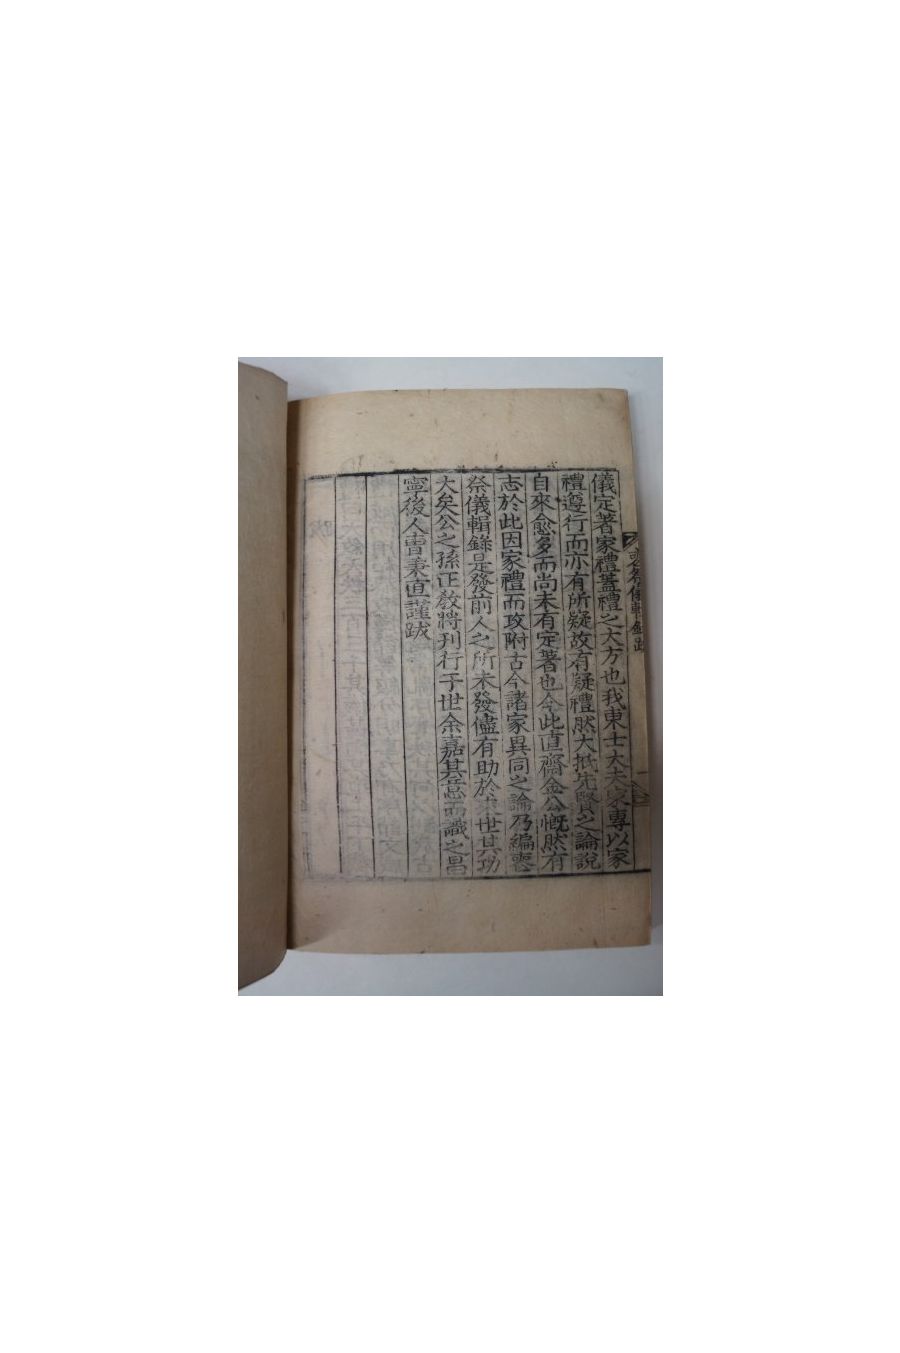 喪祭儀輯錄跋
儀定著家禮蓋禮之大方也我東士大夫家專以家
禮遵行而亦有所疑故有疑禮然大抵先賢之論說
自來愈多而尚未有定著也今此直齋金公慨然有
志於此因家禮而攷附古今諸家異同之論乃編喪
祭儀輯錄是發前人之所未發儘有助於來世其功
大矣公之孫正敎將刊行于世余嘉其志而識之昌
寧後人曺秉直謹跋